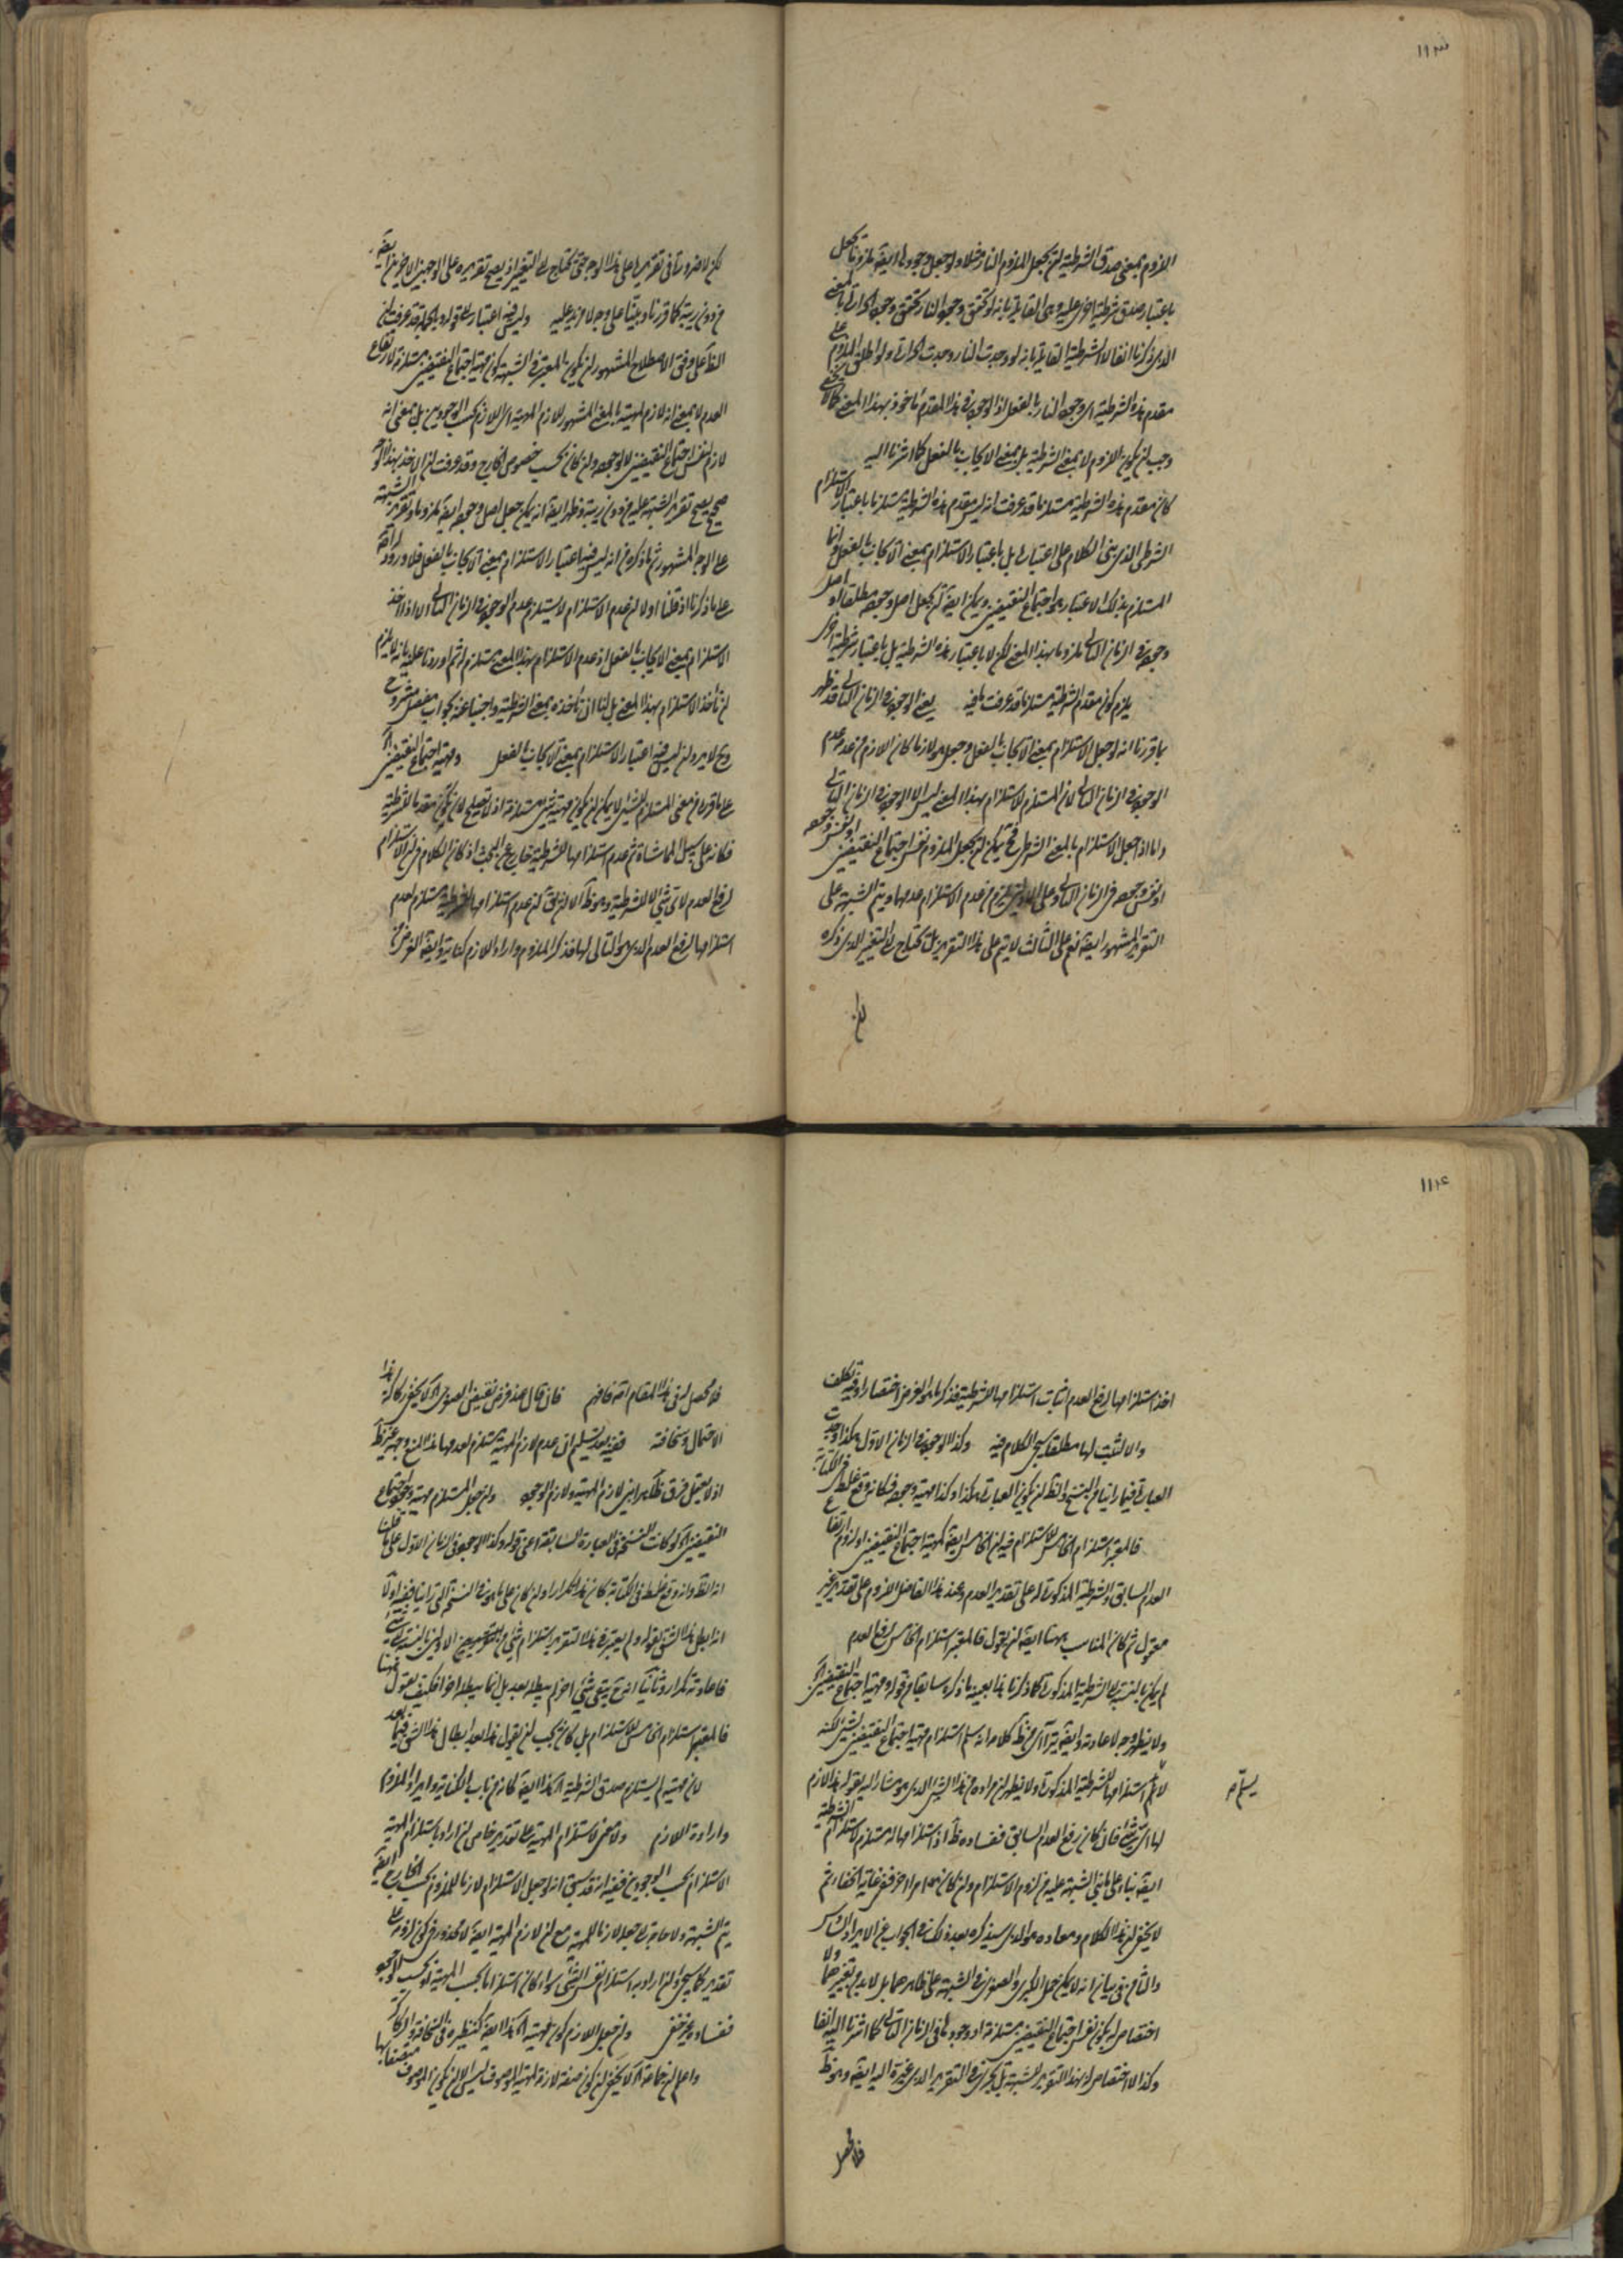 ١١٣
اللزوم بمعنى صدق الشرطية لن يجعل الملزوم النار مثلا ولو جعل وجودها ايضا ملزوما يجعل
باعتبار صدق شرطية اخرى عليه وهى القائلة بانه لو تحقق وجود النار تحقق وجود الحرارة بالمعنى
الذى ذكرنا انفا لا الشرطية القائلة بانه لو وجدت النار وجدت الحرارة ولو اطلق الملزوم على
مقدم هذه الشرطية اى وجود النار بالفعل اذ الوجود فى هذا المقدم مأخوذ بهذا المعنى كما لا يخفى
وجب لن يكون اللزوم لا بمعنى الشرطية بل بمعنى الايجاب بالفعل كما اشرنا اليه
كان مقدم هذه الشرطية مستلزما قد عرفت انه ليس مقدم هذه الشرطية مستلزما باعتبار الاستلزام
الشرطى الذى بنى الكلام على اعتباره بل باعتبار الاستلزام بمعنى الايجاب بالفعل وانما
المستلزم بذلك الاعتبار هو اجتماع النقيضين ويمكن ايضا لن يجعل اصل وجوده مطلقا او
وجوده فى الزمان الثانى ملزوما بهذا المعنى لكن لا باعتبار هذه الشرطية بل باعتبار شرطية اخرى
يلزم كون مقدم الشرطية مستلزما قد عرفت ما فيه يعنى الوجود فى الزمان الثانى قد ظهر
بما قررنا انه لو جعل الاستلزام بمعنى الايجاب بالفعل وجعل هو لازما كان اللازم من عدمه عدم
الوجود فى الزمان الثانى لان المستلزم للاستلزام بهذا المعنى ليس الا الوجود فى الزمان الثانى
واما اذا جعل الاستلزام بالمعنى الشرطى فح يمكن لن يجعل الملزوم نفس اجتماع النقيضين او نفس وجوده
او نفس وجوده فى الزمان الثانى وعلى الاولين يلزم من عدم الاستلزام عدمها ويتم الشبهة على
التقرير المشهور ايضا نعم على الثالث لا يتم على هذا التقرير بل يحتاج الى التغيير الذى ذكره
لكن لا ضرورة فى تقريرها على هذا الوجه حتى يحتاج الى التغيير اذ يصح تقريره على الوجهين الاخرين ايضا
من دون ريبة كما قررنا وبينا على وجه لا مزيد عليه وليس فيه اعتبار قد عرفت لن
الظ على وفق الاصطلاح المشهور لن يكون المعتبر فى الشبهة كون مهية اجتماع النقيضين مستلزمة لارتفاع
العدم لا بمعنى انه لازم المهية بالمعنى المشهور للازم المهية اى اللازم بحسب الوجودين بل بمعنى انه
لازم لنفس اجتماع النقيضين لا لوجوده ولن كان بحسب خصوص الخارج وقد عرفت لن الاخذ بهذا الوجه
صحيح يصح تقرير الشبهة عليه من دون ريبة وظهر ايضا انه يمكن جعل اصل وجوده ايضا ملزوما وتقرير الشبهة
على الوجه المشهور ثم ما ذكره من انه ليس فيه اعتبار الاستلزام بمعنى الايجاب بالفعل فلا ورود له ايضا
على ما ذكرنا اذ قلنا اولا لن عدم الاستلزام لا يستلزم عدم الوجود فى الزمان الثانى الا اذا اخذ
الاستلزام بمعنى الايجاب بالفعل اذ عدم الاستلزام بهذا المعنى مستلزم له ثم اوردنا عليه بانه لا يلزم
لن نأخذ الاستلزام بهذا المعنى بل لنا ان نأخذه بمعنى الشرطية واجبنا عنه بجواب مفصل مشروح
وح لا يرد لن ليس فيه اعتبار الاستلزام بمعنى الايجاب بالفعل ومهية اجتماع النقيضين الخ
على ما قرره من معنى المستلزم للشئ لا يمكن لن يكون مهية شئ مستلزمة اذ لا تصلح لان يكون مقدما لشرطية
فكانه على سبيل المماشاة ثم عدم استلزامها للشرطية خارج عن البحث اذ كان الكلام فى لن الاستلزام
لرفع العدم لا لشئ الا للشرطية وهو ظ الا لن يق لن عدم استلزامها للشرطية مستلزم لعدم
استلزامها لرفع العدم الذى هو التالى لها فذكر الملزوم واراد اللازم كناية وايضا الغرض من
١١٤
اخذ استلزامها لرفع العدم اثبات استلزامها للشرطية فذكر ما هو الغرض اختصارا وفيه تكلف
والا لثبت لها مطلقا سيجئ الكلام فيه وكذا الوجود فى الزمان الاول هكذا وجدت
العبارة فيما رأينا من النسخ والظ لن يكون العبارة هكذا وكذا مهية وجوده فكانه وقع غلط فى الكتابة
فالمعتبر استلزام الخامس للاستلزام فيه لن الخامس ايضا كمهية اجتماع النقيضين او لزوم ارتفاع
العدم السابق والشرطية المذكورة له على تقدير العدم وعند هذا الفاضل اللزوم على تقدير غير
معقول ثم كان المناسب ههنا ايضا لن يقول فالمعتبر استلزام الخامس لرفع العدم
لم يكن بالنسبة الى الشرطية المذكورة كما ذكرنا هذا بعينه ما ذكره سابقا من قوله ومهية اجتماع النقيضين الخ
ولا يظهر وجه لاعادته وايضا يترآى من ظ كلامه انه سلم استلزام مهية اجتماع النقيضين لشئ لكنه
لا يسلم استلزامها للشرطية المذكورة ولا يظهر لن مراده من هذا الشئ الذى هو مشار اليه بقوله هذا لازم
لها اى شئ فان كان رفع العدم السابق ففساده ظ اذ استلزامها له مستلزم لاستلزام الشرطية
ايضا بناء على ما بنى الشبهة عليه من لزوم الاستلزام ولن كان امرا اخر ففى غاية الخفاء ثم
لا يخفى لن هذا الكلام ومعاده هو الذى سيذكره بعد ذلك فى الجواب عن الايراد السادس
والثامن فى بيان انه لا يمكن حمل الكبرى والصغرى فى الشبهة على ظاهرهما بل لا بد من تغييرهما ولا
اختصاص له بكون نفس اجتماع النقيضين مستلزمة او وجودها فى الزمان الثانى كما اشرنا اليه انفا
وكذا لا اختصاص له بهذا التقرير للشبهة بل يجرى فى التقرير الذى غيره اليه ايضا وهو ظ
فلا محصل
يسلم صح
فلا محصل لن هذا المقام اصلا فافهم فان قال احد فرض نقيض الصغرى الخ لا يخفى ركاكة هذا
الاحتمال وسخافته ففيه بعد تسليم ان عدم لازم المهية مستلزم لعدمها هذا المنع وجهه غير ظ
اذ لا يعقل فرق ظاهر بين لازم المهية ولازم الوجود ولن جعل المستلزم مهية وجود اجتماع
النقيضين الخ لو كانت النسخة فى العبارة السابقة اعنى قوله وكذا الوجود فى الزمان الاول على ما قلنا
انه الظ وانه وقع غلط فى الكتابة كان هذا تكرارا ولن كان على ما هو فى النسخ التى رأينا ففيه اولا
فاعادته تكرار وثانيا انه ح يبقى شئ اخر لم يبطله بعد بل انما يبطله اخرا فكيف يقول ههنا
فالمعتبر استلزام الخامس للاستلزام بل كان يجب لن يقول هذا بعد ابطال هذا الشق فيما بعد
لان مهيته لم يستلزم صدق الشرطية الخ هذا ايضا كانه من باب الكناية وايراد الملزوم
وارادة اللازم ولا معنى لاستلزام المهية على تقدير خاص لن اراد باستلزام المهية
الاستلزام بحسب الوجودين ففيه انه قد سبق انه لو جعل الاستلزام لازما للملزوم بحسب الخارج ايضا
يتم الشبهة ولا حاجة الى جعله لازما للمهية مع لن لازم المهية ايضا لا محذور فى كون لزومه على
تقدير كما سيجئ ولن اراد به استلزام نفس الشئ سواء كان استلزاما بحسب المهية او بحسب الوجود
ففساده غير خفى ولن جعل اللازم كون مهية الخ هذا ايضا كنظيره فى السخافة والركاكة
واعلم لن جماعة الخ لا يخفى لن كون صفة لازمة لمهية الموصوف ليس الا لن يكون الموصوف متصفا بها